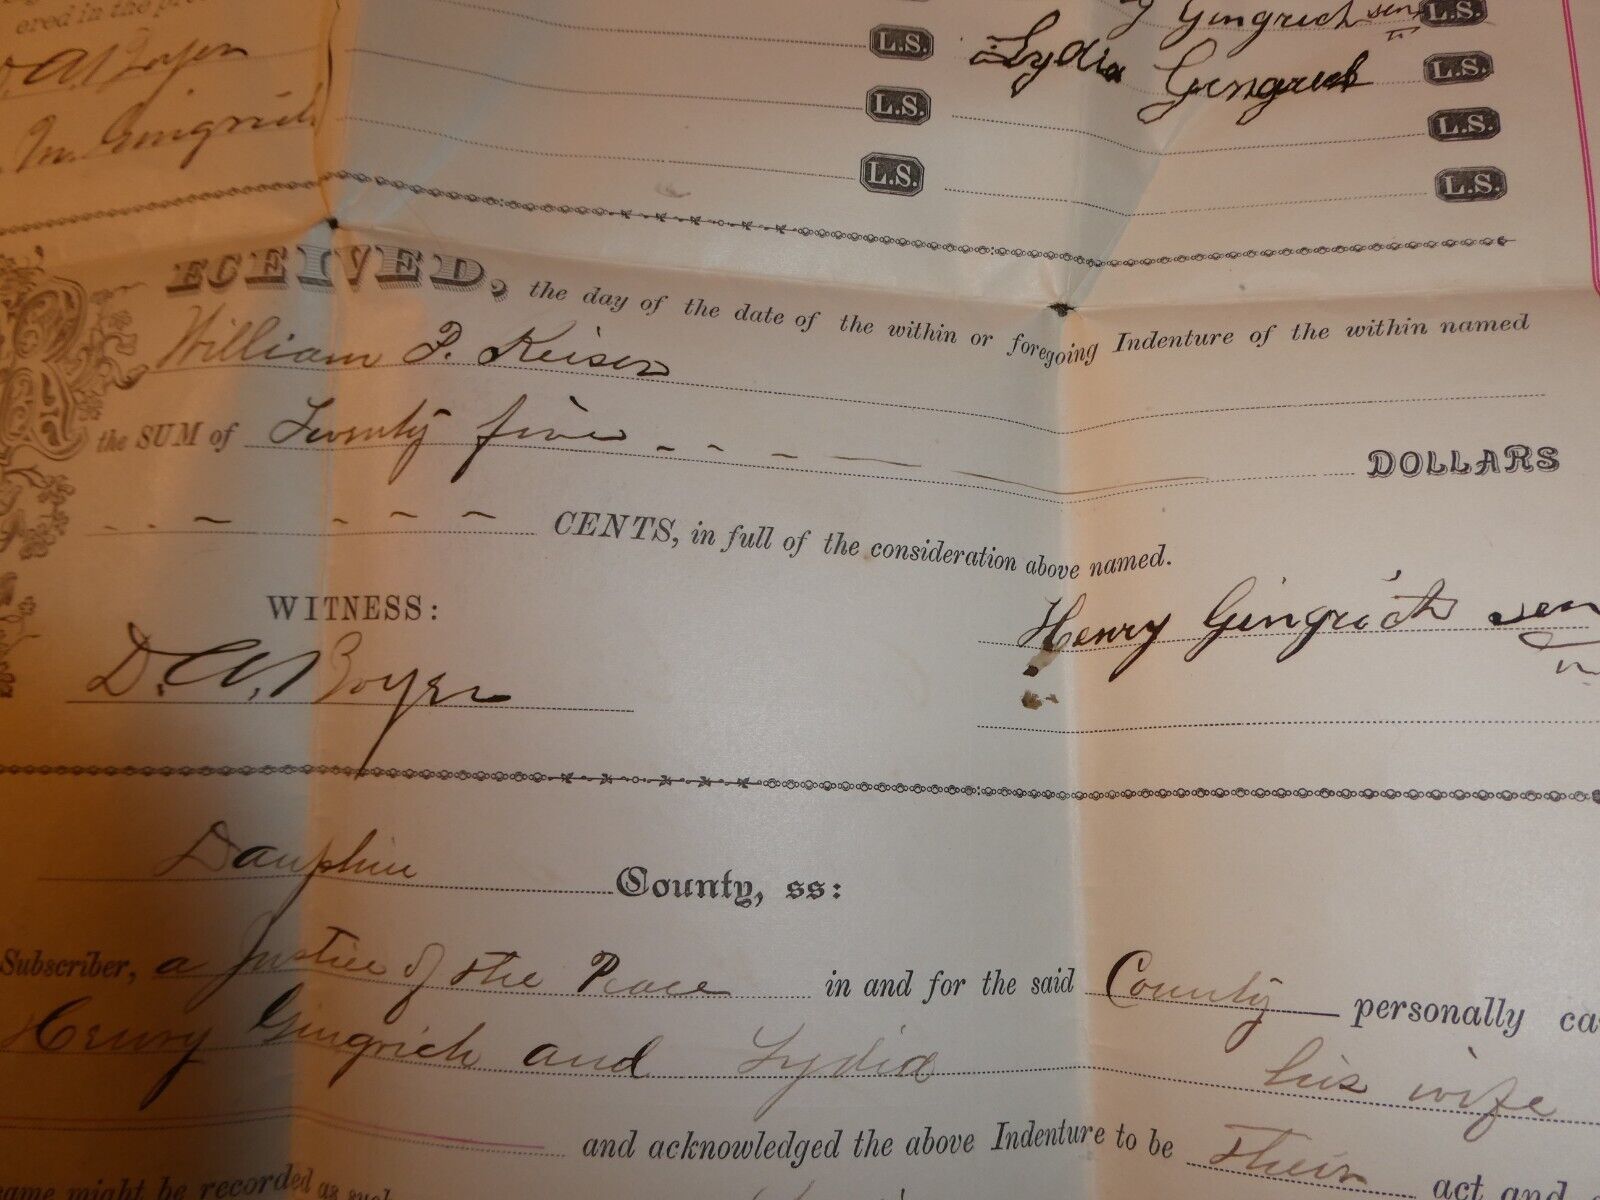 ered in the pre
D. A. Boyer
M. Gingrich
L.S. Gingrich sen L.S.
L.S. Lydia Gingrich L.S.
L.S. L.S.
L.S. L.S.
RECEIVED, the day of the date of the within or foregoing Indenture of the within named
William P. Keiser
the SUM of Twenty five - - - - DOLLARS
- - - - - - CENTS, in full of the consideration above named.
WITNESS:
Henry Gingrich sen
D. A. Boyer
Dauphin County, ss:
Subscriber, a Justice of the Peace in and for the said County personally ca
Henry Gingrich and Lydia his wife
and acknowledged the above Indenture to be their act and
same might be recorded as such